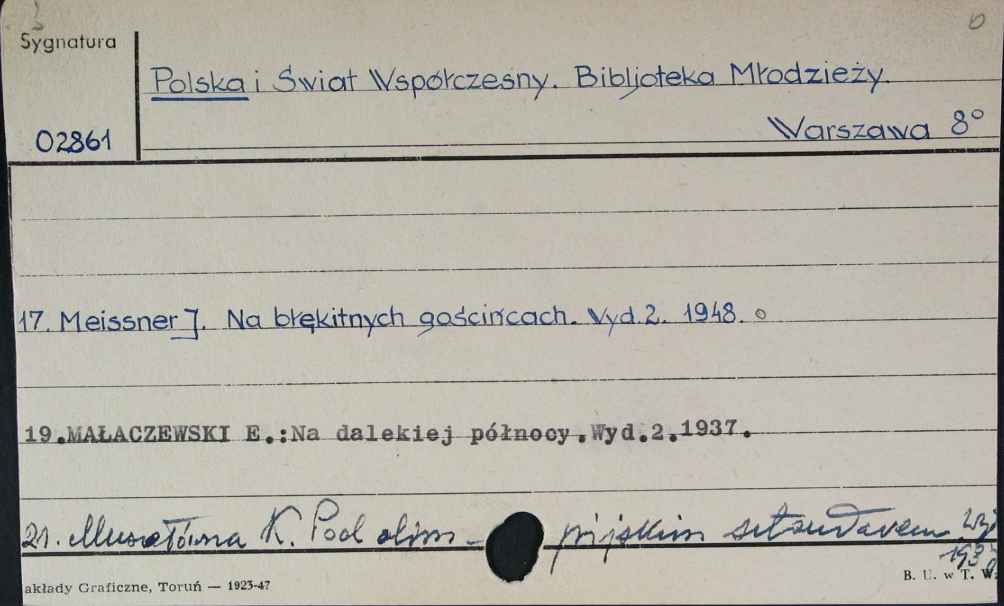 Sygnatura
Polska i Świat Współczesny. Bibljoteka Młodzieży.
02861
Warszawa 8°
17. Meissner J. Na błękitnych gościńcach. Wyd.2. 1948.
19.MAŁACZEWSKI E.:Na dalekiej północy.Wyd.2.1937.
21. Muszałówna K. Pod olim- pijskim sztandarem.
akłady Graficzne, Toruń — 1923-47
B. U. w T. W.